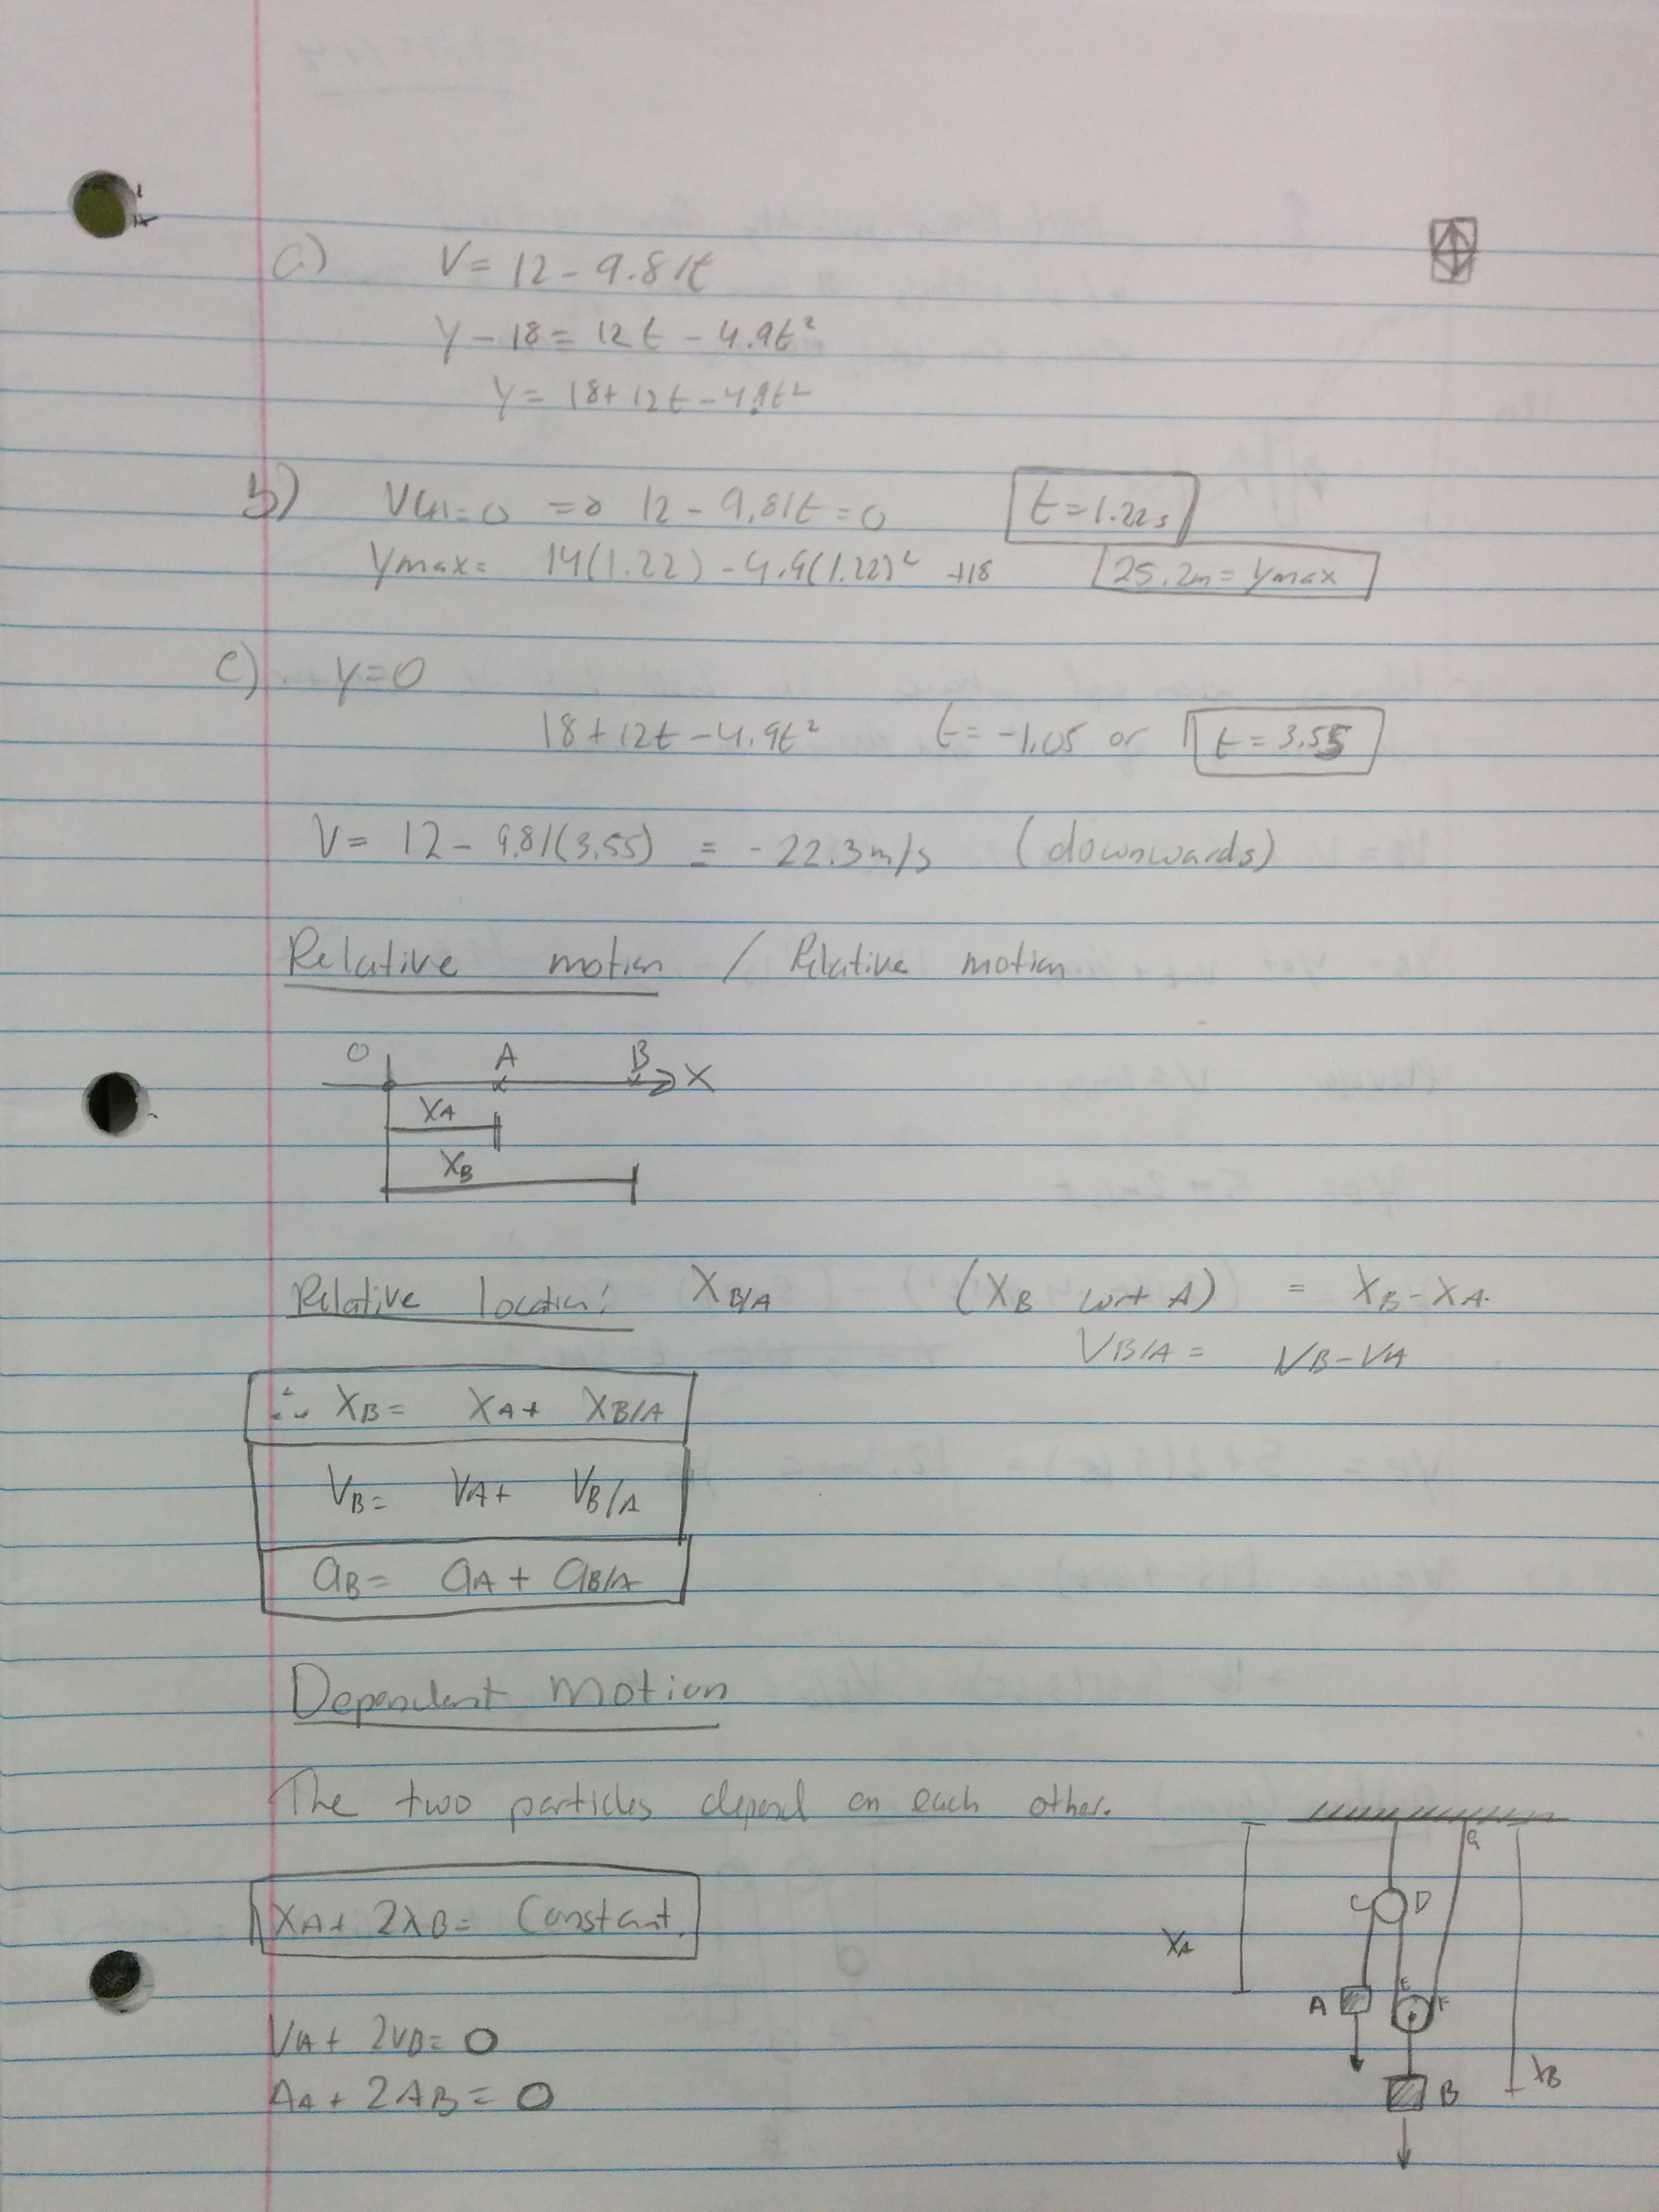 a) V = 12 - 9.81t
y - 18 = 12t - 4.9t²
y = 18 + 12t - 4.9t²
b) V(t) = 0 => 12 - 9.81t = 0 t = 1.22s
ymax = 14(1.22) - 4.9(1.22)² + 18 25.2m = ymax
c) y = 0
18 + 12t - 4.9t² t = -1.05 or t = 3.55
V = 12 - 9.81(3.55) = -22.3m/s (downwards)
Relative motion / Relative motion
O A B X
XA
XB
Relative location: XB/A (XB wrt A) = XB - XA.
VB/A = VB - VA
∴ XB = XA + XB/A
VB = VA + VB/A
aB = aA + aB/A
Dependent Motion
The two particles depend on each other.
G
XA + 2XB = Constant.
C D
XA
E
A F
VA + 2VB = 0
AA + 2AB = 0
B XB